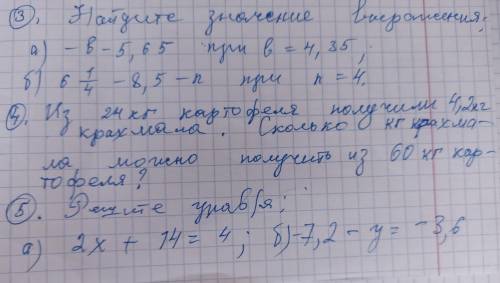 ③. Найдите значение выражения:
а) -в - 5,65 при в = 4,35;
б) 6 1/4 - 8,5 - n при n = 4.
④. Из 24 кг картофеля получили 4,2 кг
крахмала. Сколько кг крахма-
ла можно получить из 60 кг кар-
тофеля?
⑤. Решите уравн-я:
а) 2x + 14 = 4; б) -7,2 - y = -3,6